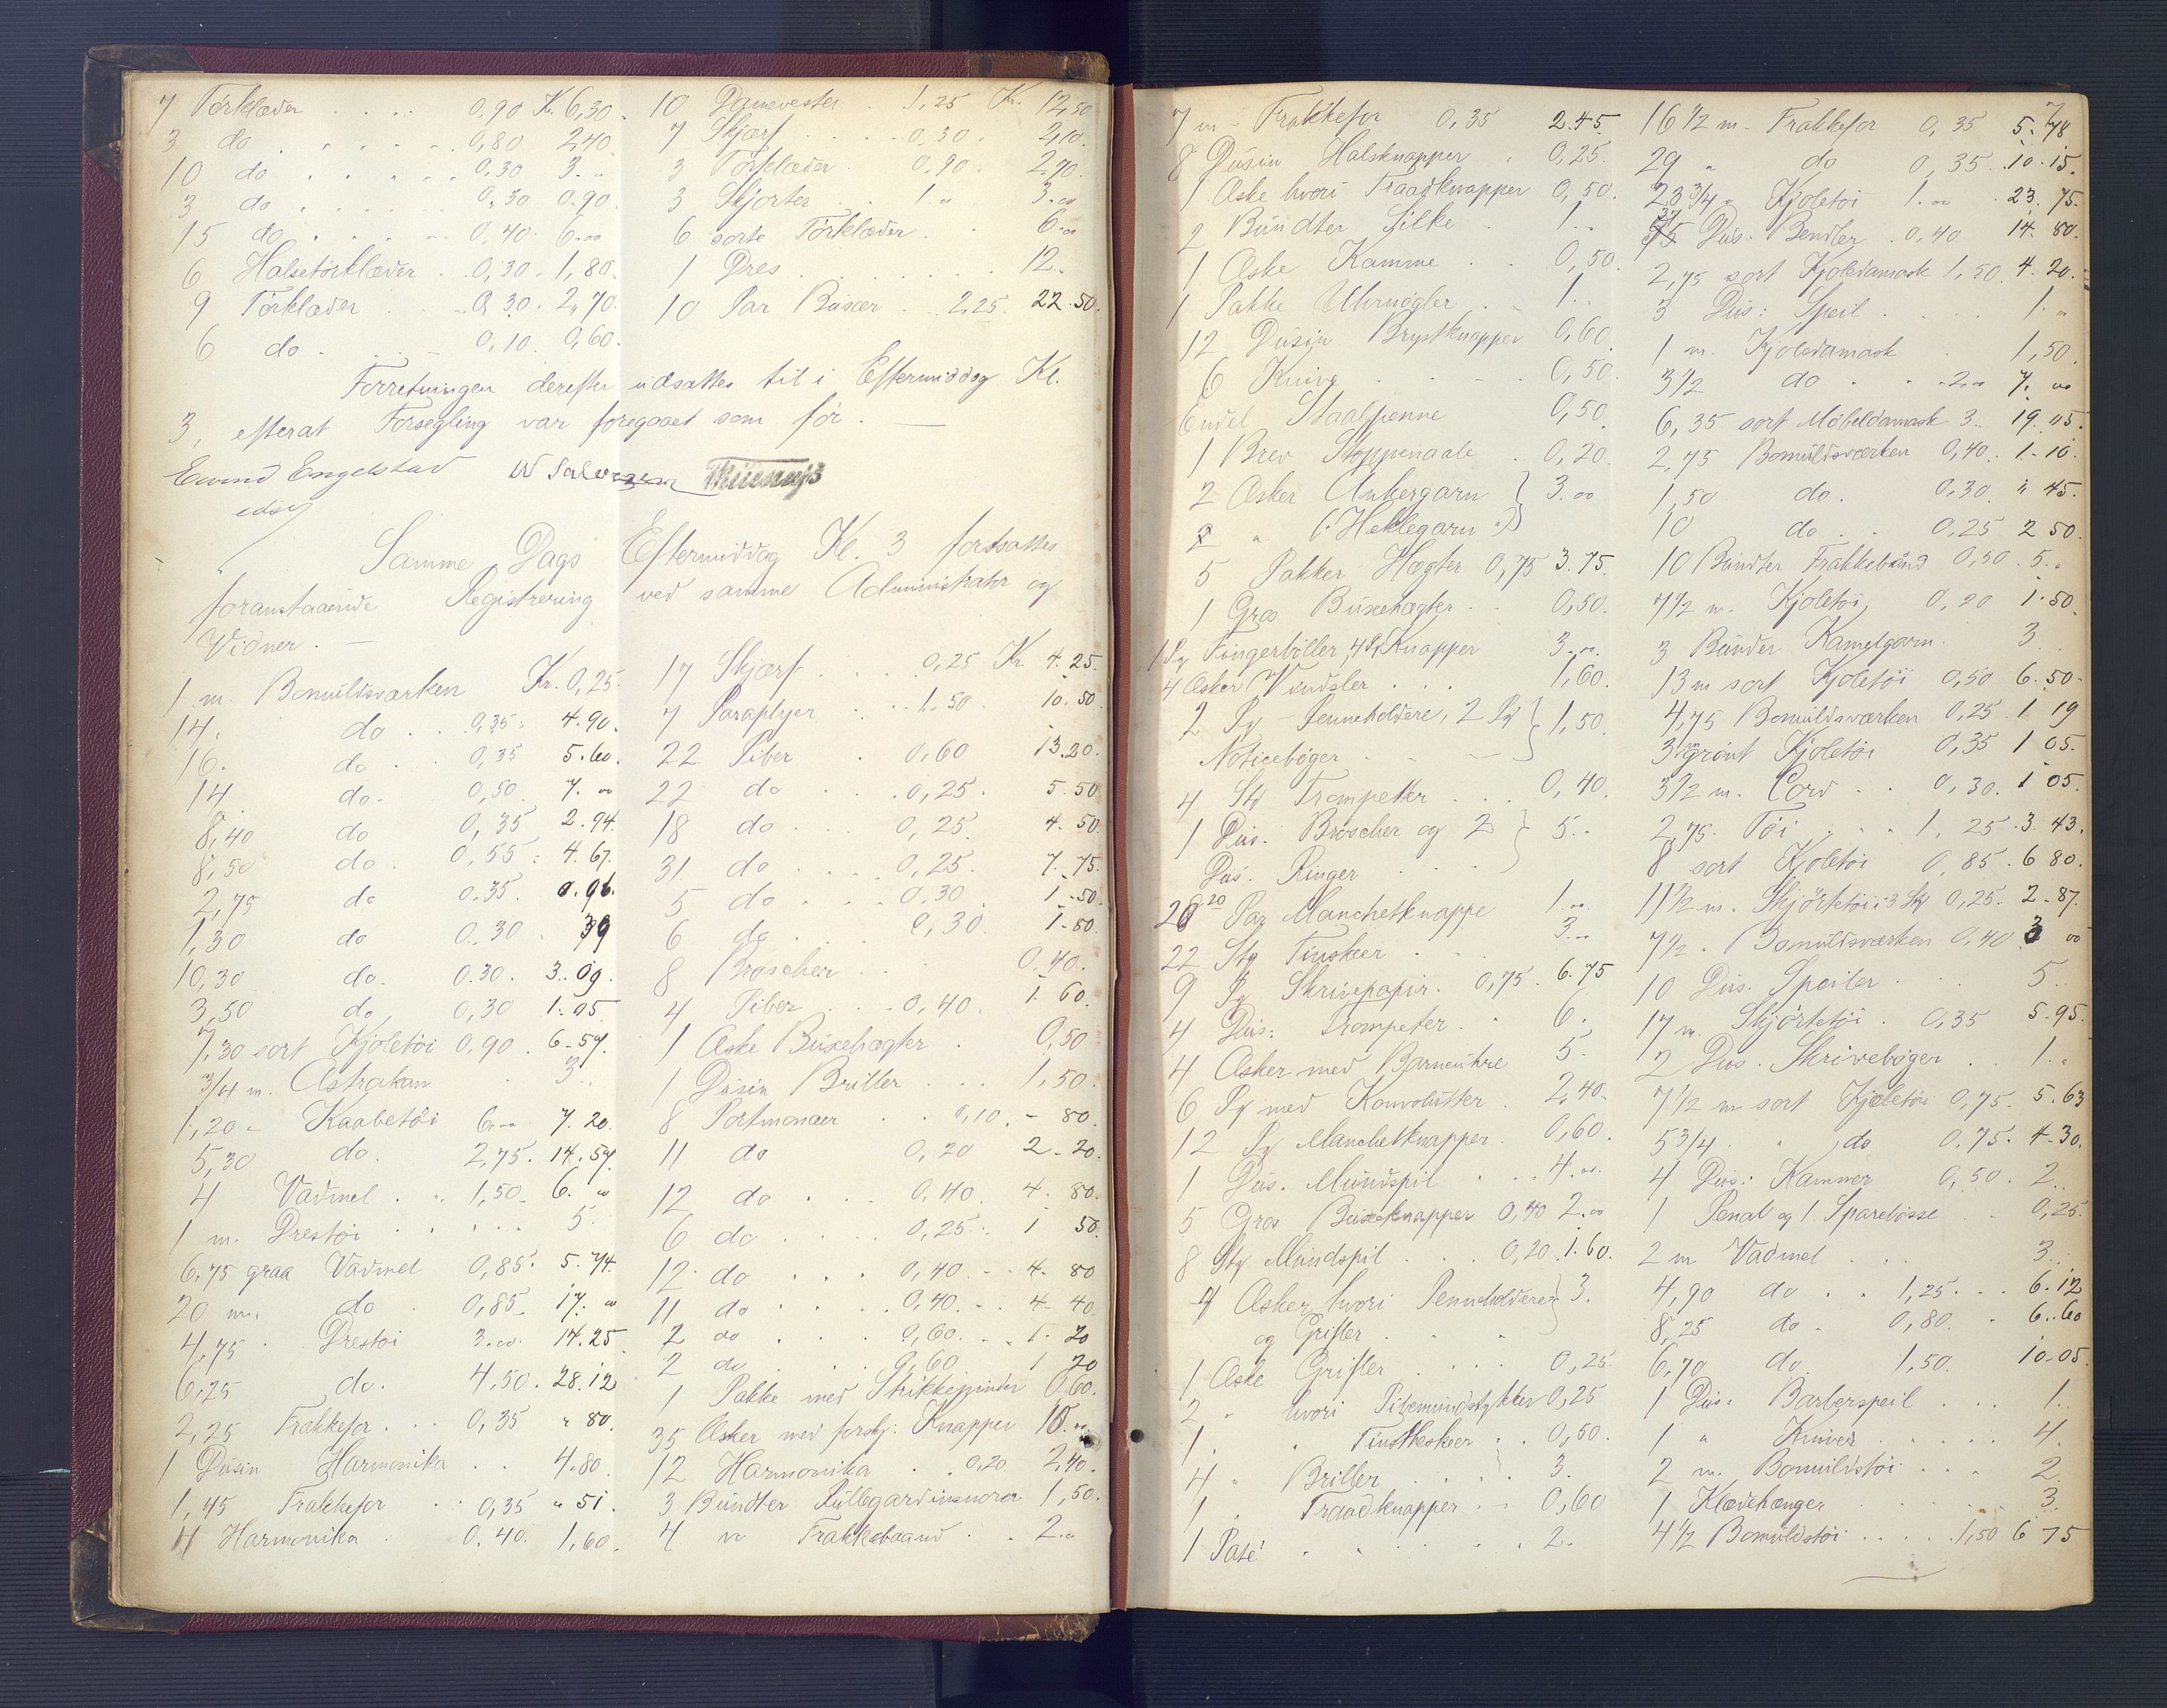 7 Törklæder . . . . 0,90 Kr. 6,30.
3 do . . . . . 0,80 2,40
10 do . . . . . 0,30 3. „
3 do . . . . . 0,30 0.90.
15 do . . . . . 0,40. 6.00
6 Halsetörklæder . 0,30. 1,80.
9 Törklæder . . . 0,30. 2,70.
6 do . . . . 0,10. 0,60.
10 Damevester . 1,25 Kr. 12,50
7 Skjærf . . 0,30. 2,10.
3 Törklæder . 0,90. 2,70.
3 Skjorter . 1 „ 3.00
6 sorte Törklæder . . 6.00
1 Dres . . . . . . . 12 „
10 Par Buxer . . 2,25. 22.50.
Forretningen derefter udsattes til i Eftermiddag Kl.
3, efterat Forsegling var foregaaet som för. —
Eivind Engelstad
edsv
Samme Dags Eftermiddag Kl. 3 fortsattes
foranstaaende Registrering ved samme Administrator og
Vidner. —
1 m. Bomuldsværken Kr. 0,25.
14. do . . 0,35. 4.90.
16. do . . 0,35 5.60.
14 do. 0,50 7.00
8,40 do 0,35 2.94.
8,50 do. 0,55 : 4.67.
2,75 do 0.35. 0.96.
1,30 do 0.30 39
10,30 do. 0.30. 3.09.
3,50 do 0,30 1.05.
7,30 sort Kjoletöi 0,90. 6.57.
3/4 m. Astrakan . 3 . .
1,20 – Kaabetöi 6.00 7.20.
5,30 do. 2,75. 14.57.
4 Vadmel . . 1,50. 6.00
1 m. Drestöi . . . . 5.
6.75 graa Vadmel 0,85. 5.74.
20 m. do . 0,85. 17.00
4,75 . Drestöi 3.00. 14.25
6,25 do. 4,50. 28.12
2,25 Frakkefor . . . 0,35 „ 80.
1 Dusin Harmonika . . 4.80
1,45 Frakkefor . . 0,35 „ 51.
4 Harmonika . 0.40. 1,60.
17 Skjærf . . . 0,25 Kr 4.25.
7 Paraplyer . . . 1.50 . 10.50
22 Piber . 0,60 13.20.
22 do . . . 0,25. 5.50
18 do . . . 0,25. 4.50.
31 do . . . . 0,25. 7.75.
5 do . . . . 0,30 1.50.
6 do . . . 0,30. 1.50
8 Broscher . . . 0.40.
4 Piber . . . 0,40. 1.60.
1 Æske Buxehægter . 0,50
1 Dusin Briller . . . 1,50.
8 Portmonaer . . 0,10. – 80.
11 do 0,20 2.20.
12 do . . . 0,40. 4.80.
6 do . . . . 0,25. 1 50.
12 do . . . 0,40. . . 4.80
11 do . . . . 0,40. . . 4.40.
2 do . . . 0,60. . . 1.20
2 do . . . 0,60 1 20
1 Pakke med Strikkepinder 0,60.
35 Æsker med forskj: Knapper 10.00
12 Harmonika . . 0,20 2,40.
3 Bundter Rullegardinsnorer 1,50.
4 m Frakkebaand . . 2.00
7 m – Frakkefor 0,35 2.45.
8 Dusin Halsknapper . 0,25.
1 Æske hvori Traadknapper 0,50.
2 Bundter Silke . 1 . .
1 Æske Kamme . . 0,50.
1 Pakke Uhrnögler . . 1. .
12 Dusin Brystknapper 0,60.
6 Knive . . . . . 0,50.
Endel Staalpenne 0,50.
1 Brev Stoppenaale . 0,20.
2 Æsker Ankergarn } 3.00
2 „ (: Heklegarn :)
5 Pakker Hægter 0,75 3.75.
1 Gros Buxehægter . . 0,50.
1 Pg Fingerböller, 4 Pg Knapper 3.00.
4 Æsker Vindsler . . . 1,60.
2 Pg – Penneholdere, 2 Pg } 1,50.
Noticebøger . . . —
4 Stg Trompetter . . . 0,40.
1 Dus. Broscher og 2 } 5 . .
Dus. Ringer . . .
20 Par Manchetknappe 1 . 00
22 Stg Tinskeer . . . 3.00
9 Pg Skrivepapir. 0,75. 6.75
4 Dus: Trompeter . . 6.
4 Æsker med Barneuhre 5.
6 Pg med Konvolutter . 2,40.
12 Pg Manchetknapper . 0,60.
1 Dus. Mundspil . . . 4.00.
5 Gros Buxeknapper 0,40 2.00
8 Stg Mundspil . . . 0,20. 1.60.
4 Æsker hvori Penneholdere } 3.
og Grifler . . .
1 Æske Grifler . . . . 0,25
2 „ hvori Pibemundstykker 0,25
1 . „ Tinstheskeer . . 0,50.
4 „ Briller . . . . . 3.
1 „ Traadknapper . . . 0,60
1 Paté . . . . . . 2.
7
16 1/2 m. Frakkefor 0,35 5.78
29 „ do 0,35. 10.15.
23 3/4 „ Kjoletöi 1.00 . 23.75.
37 Dus. Bendler . 0,40 14.80.
2,75 sort Kjoledamask 1,50. 4.20.
3 Dus: Speil . . . . 1. „
1 m. Kjoledamask . 1,50.
3 1/2 do . . . 2.00 7.00
6,35 sort Möbeldamask 3. . 19.05.
2,75 Bomuldsværken 0,40. 1.10.
1,50 do. 0,30 „ 45.
10 do . . 0,25 2 50.
10 Bundter Frakkebånd 0,50. 5. .
7 1/2 m. Kjoletöi, 0,20 1.50.
3 Bunder Kamelgarn . 3
13 m sort Kjoletöi 0,50 6.50.
4,75 Bomuldsværken 0,25. 1 19
3 m grönt Kjoletöi 0,35 1 05.
3 1/2 m. Cord . . 0,30. 1 05.
2,75. Töi . . . . 1,25. 3.43.
8 sort Kjoletöi 0,85. 6 80.
11 1/2 m. Skjörtetöi i 3 Stg 0,25. 2.87.
7 1/2. Bomuldsværken 0,40 3 00
10 Dus. Speiler . . . 5 .
17 m. Skjörtetöi . 0,35 5.95.
2 Dus. Skrivebøger . . 1. „
7 1/2 m sort Kjoletöi 0,75. 5.63
5 3/4 . „ do 0,75. 4.30.
4 Dus: Kammer 0,50. 2 . .
1 Penal og 1 Sparebösse . 0,25.
2 m Vadmel . . . 3 . .
4,90 do . . 1,25. . . 6.12
8,25 do . 0,80. . 6.60
6,70 do. 1,50. 10.05.
1 Dus. Barberspeil . . . 1 . .
1 „ Kniver . . . . 4.
2 m. Bomuldstöi . . . 2.
1 Klædehænger . . . 3.
4 1/2 Bomuldstöi . . . . 1,50 6 75